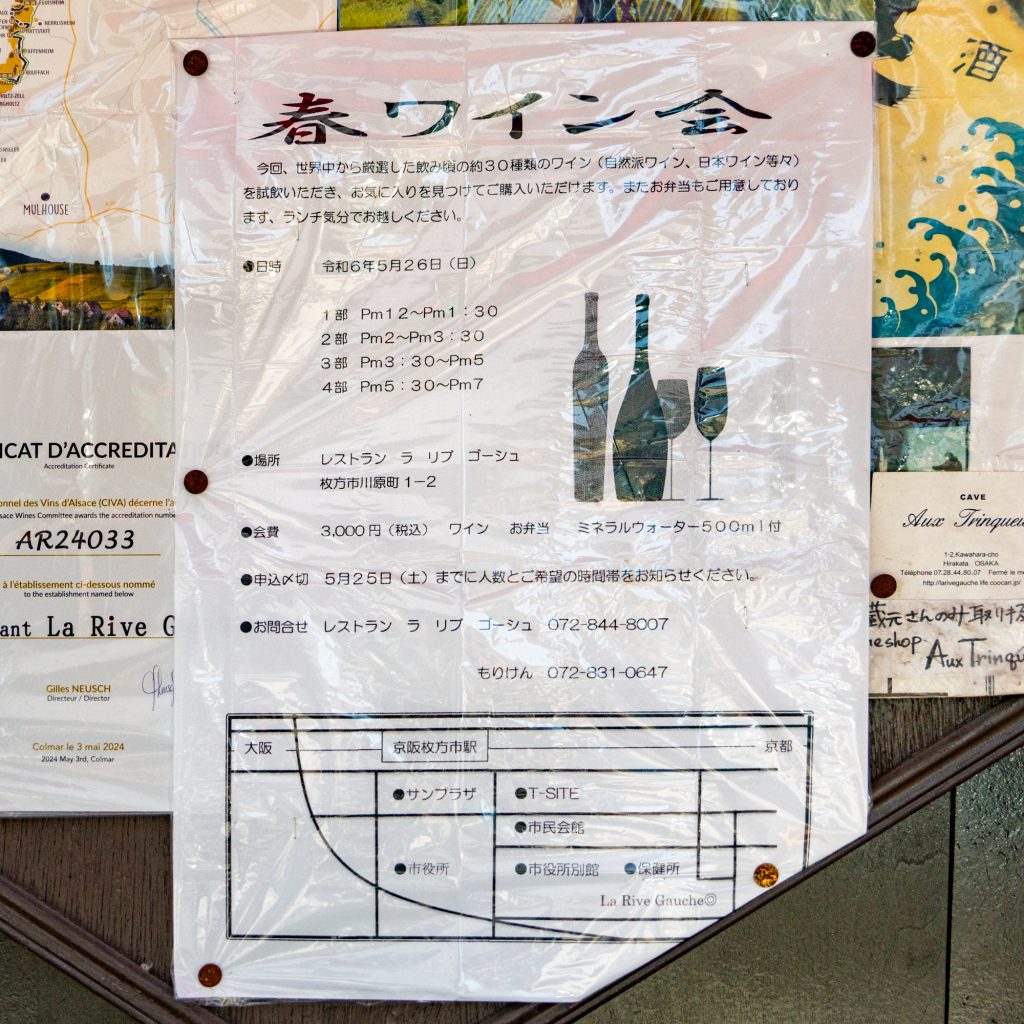 春ワイン会
今回、世界中から厳選した飲み頃の約30種類のワイン（自然派ワイン、日本ワイン等々）
を試飲いただき、お気に入りを見つけてご購入いただけます。またお弁当もご用意しており
ます、ランチ気分でお越しください。
●日時 令和6年5月26日（日）
1部 Pm12～Pm1：30
2部 Pm2～Pm3：30
3部 Pm3：30～Pm5
4部 Pm5：30～Pm7
●場所 レストラン ラ リブ ゴーシュ
枚方市川原町1-2
●会費 3,000円（税込） ワイン お弁当 ミネラルウォーター500ml付
●申込〆切 5月25日（土）までに人数とご希望の時間帯をお知らせください。
●お問合せ レストラン ラ リブ ゴーシュ 072-844-8007
もりけん 072-831-0647
大阪 京阪枚方市駅 京都
●サンプラザ ●T-SITE
●市民会館
●市役所 ●市役所別館 ●保健所
La Rive Gauche◎
NERRLISHEIM
ROUFFACH
MULHOUSE
ICAT D'ACCREDITA
Accreditation Certificate
onnel des Vins d'Alsace (CIVA) décerne l'a
sace Wines Committee awards the accreditation numbe
AR24033
à l'établissement ci-dessous nommé
to the establishment named below
ant La Rive G
Gilles NEUSCH
Directeur / Director
Colmar le 3 mai 2024
2024 May 3rd, Colmar
酒
CAVE
Aux Trinqueu
1-2,Kawahara-cho
Hirakata OSAKA
Téléphone 07.28.44.80.07 Fermé le me
http://larivegauche.life.coocan.jp/
蔵元さんのみ取り
neshop
Aux Trinqu